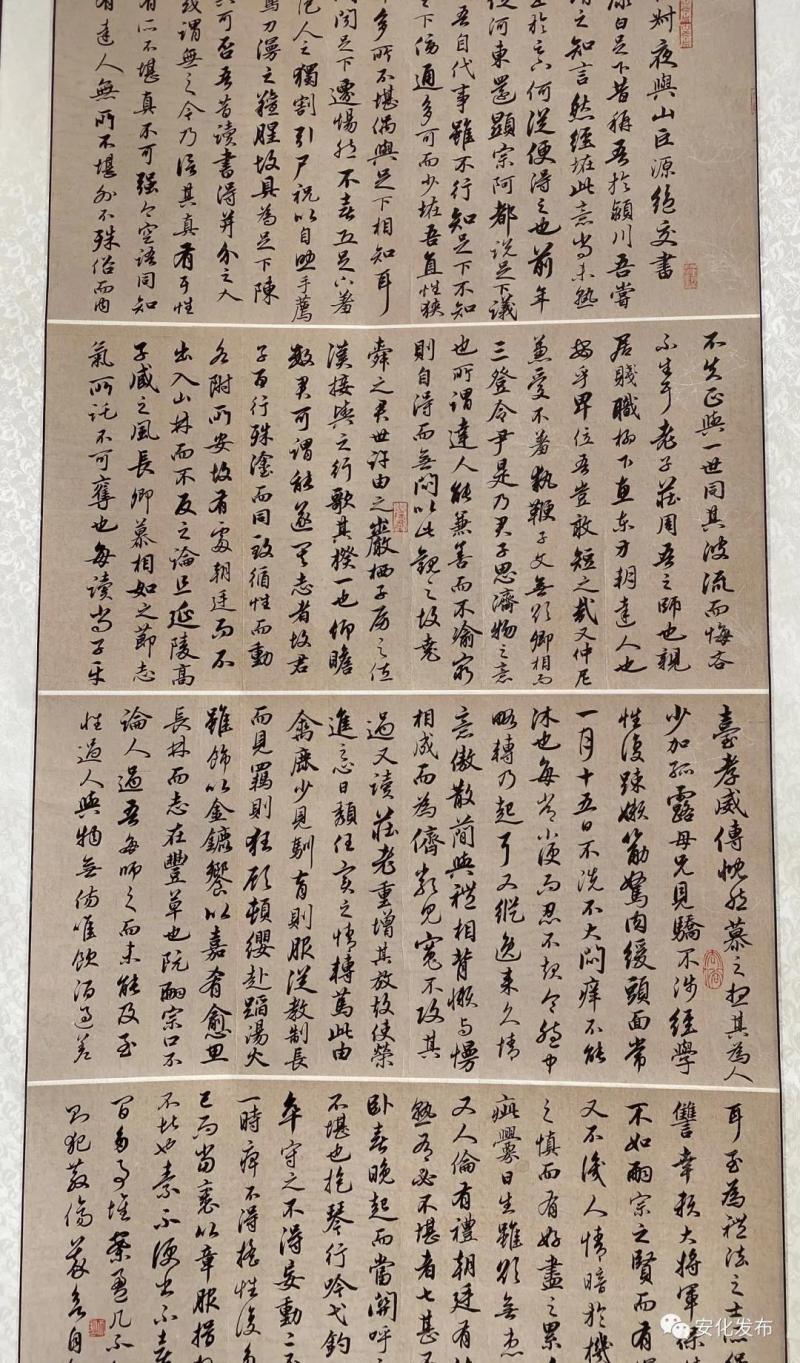 叔夜與山巨源絕交書
康白足下昔稱吾於潁川吾嘗
謂之知言然經怪此意尚未熟
於足下何從便得之也前年
從河東還顯宗阿都說足下議
吾自代事雖不行知足下不知
足下傍通多可而少怪吾直性狹
中多所不堪偶與足下相知耳
間聞足下遷惕然不喜恐足下羞
庖人之獨割引尸祝以自助手薦
鸞刀漫之羶腥故具為足下陳
其可否吾昔讀書得并介之人
或謂無之今乃信其真有耳性
有所不堪真不可強今空語同知
有達人無所不堪外不殊俗而內
不失正與一世同其波流而悔吝
不生耳老子莊周吾之師也親
居賤職柳下惠東方朔達人也
安乎卑位吾豈敢短之哉又仲尼
兼愛不羞執鞭子文無欲卿相而
三登令尹是乃君子思濟物之意
也所謂達人能兼善而不渝窮
則自得而無悶以此觀之故堯
舜之君世許由之巖栖子房之佐
漢接輿之行歌其揆一也仰瞻
數君可謂能遂其志者故君
子百行殊塗而同致循性而動
各附所安故有處朝廷而不
出入山林而不反之論且延陵高
子臧之風長卿慕相如之節志
氣所託不可奪也每讀尚子平
臺孝威傳慨然慕之想其為人
少加孤露母兄見驕不涉經學
性復踈嬾筋駑肉緩頭面常
一月十五日不洗不大悶痒不能
沐也每常小便而忍不起令胞中
略轉乃起耳又縱逸來久情
意傲散簡與禮相背懶與慢
相成而為儕類見寬不攻其
過又讀莊老重增其放故使榮
進之心日頹任實之情轉篤此由
禽鹿少見馴育則服從教制長
而見羈則狂顧頓纓赴蹈湯火
雖飾以金鑣饗以嘉肴愈思
長林而志在豐草也阮嗣宗口不
論人過吾每師之而未能及至
性過人與物無傷唯飲酒過差
耳至為禮法之士所繩
讎幸賴大將軍保持
不如嗣宗之賢而有
又不識人情暗於機
之慎而有好盡之累
疵釁日生雖欲無患
又人倫有禮朝廷有
熟有必不堪者七甚不
臥喜晚起而當關呼之
不堪也抱琴行吟弋釣
卒守之不得妄動二不
一時痺不得搖性復多
已而當裹以章服揖
不堪也素不便書不喜
間多事堆案盈几不
則犯教傷義欲自
安化发布